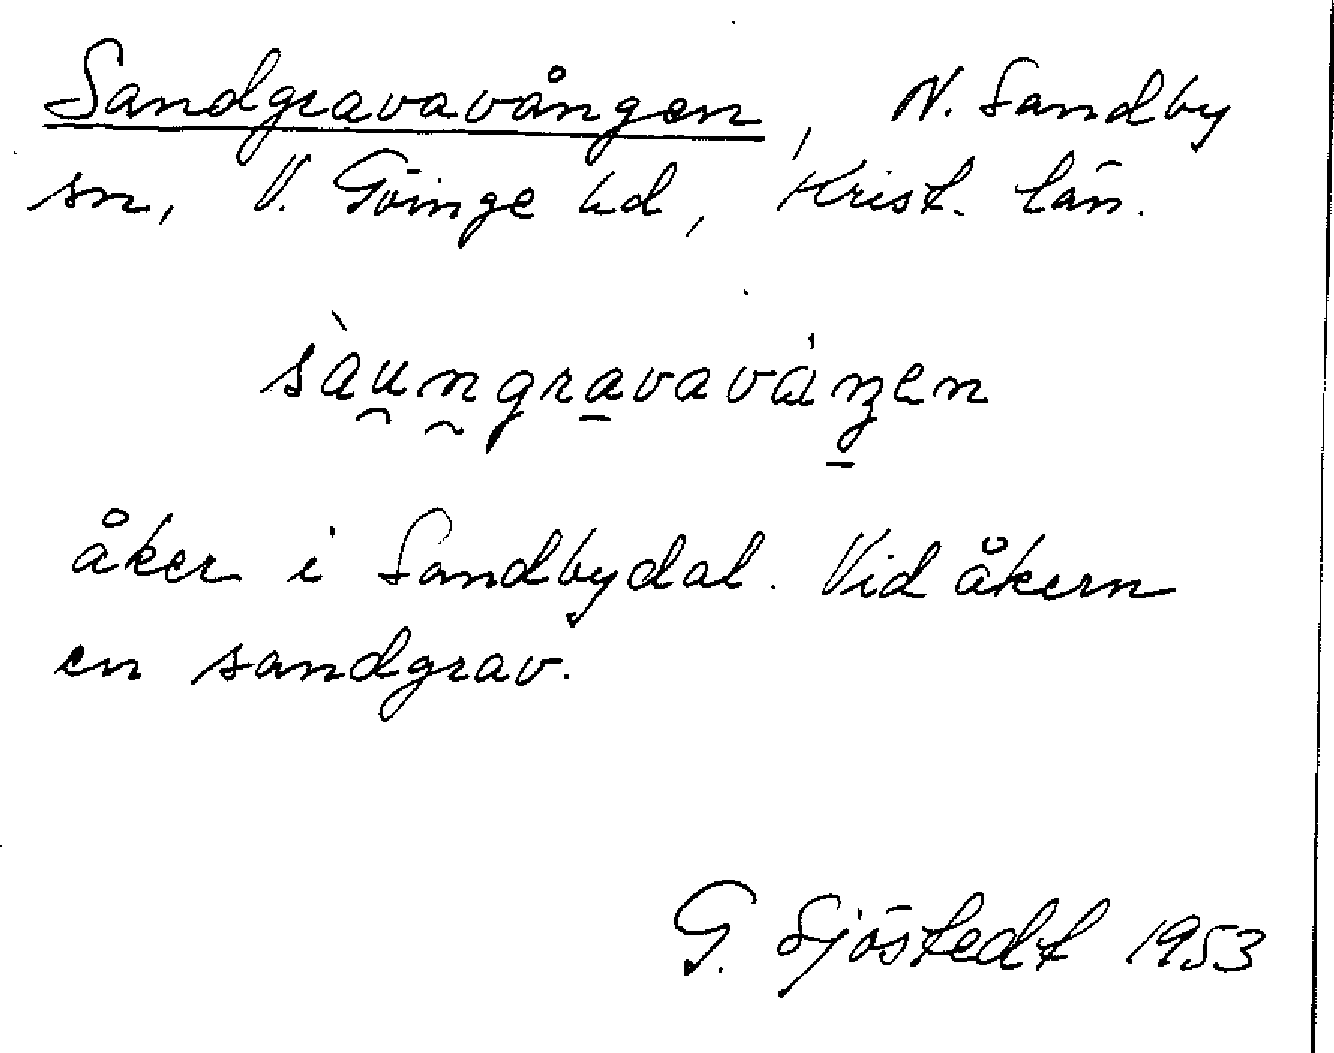 Sandgravavången, N. Sandby
sn, V. Göinge hd, Krist. län.
sàu̯n̰gra̱vavȧŋen
åker i Sandbydal. Vid åkern
en sandgrav.
G. Sjöstedt 1953